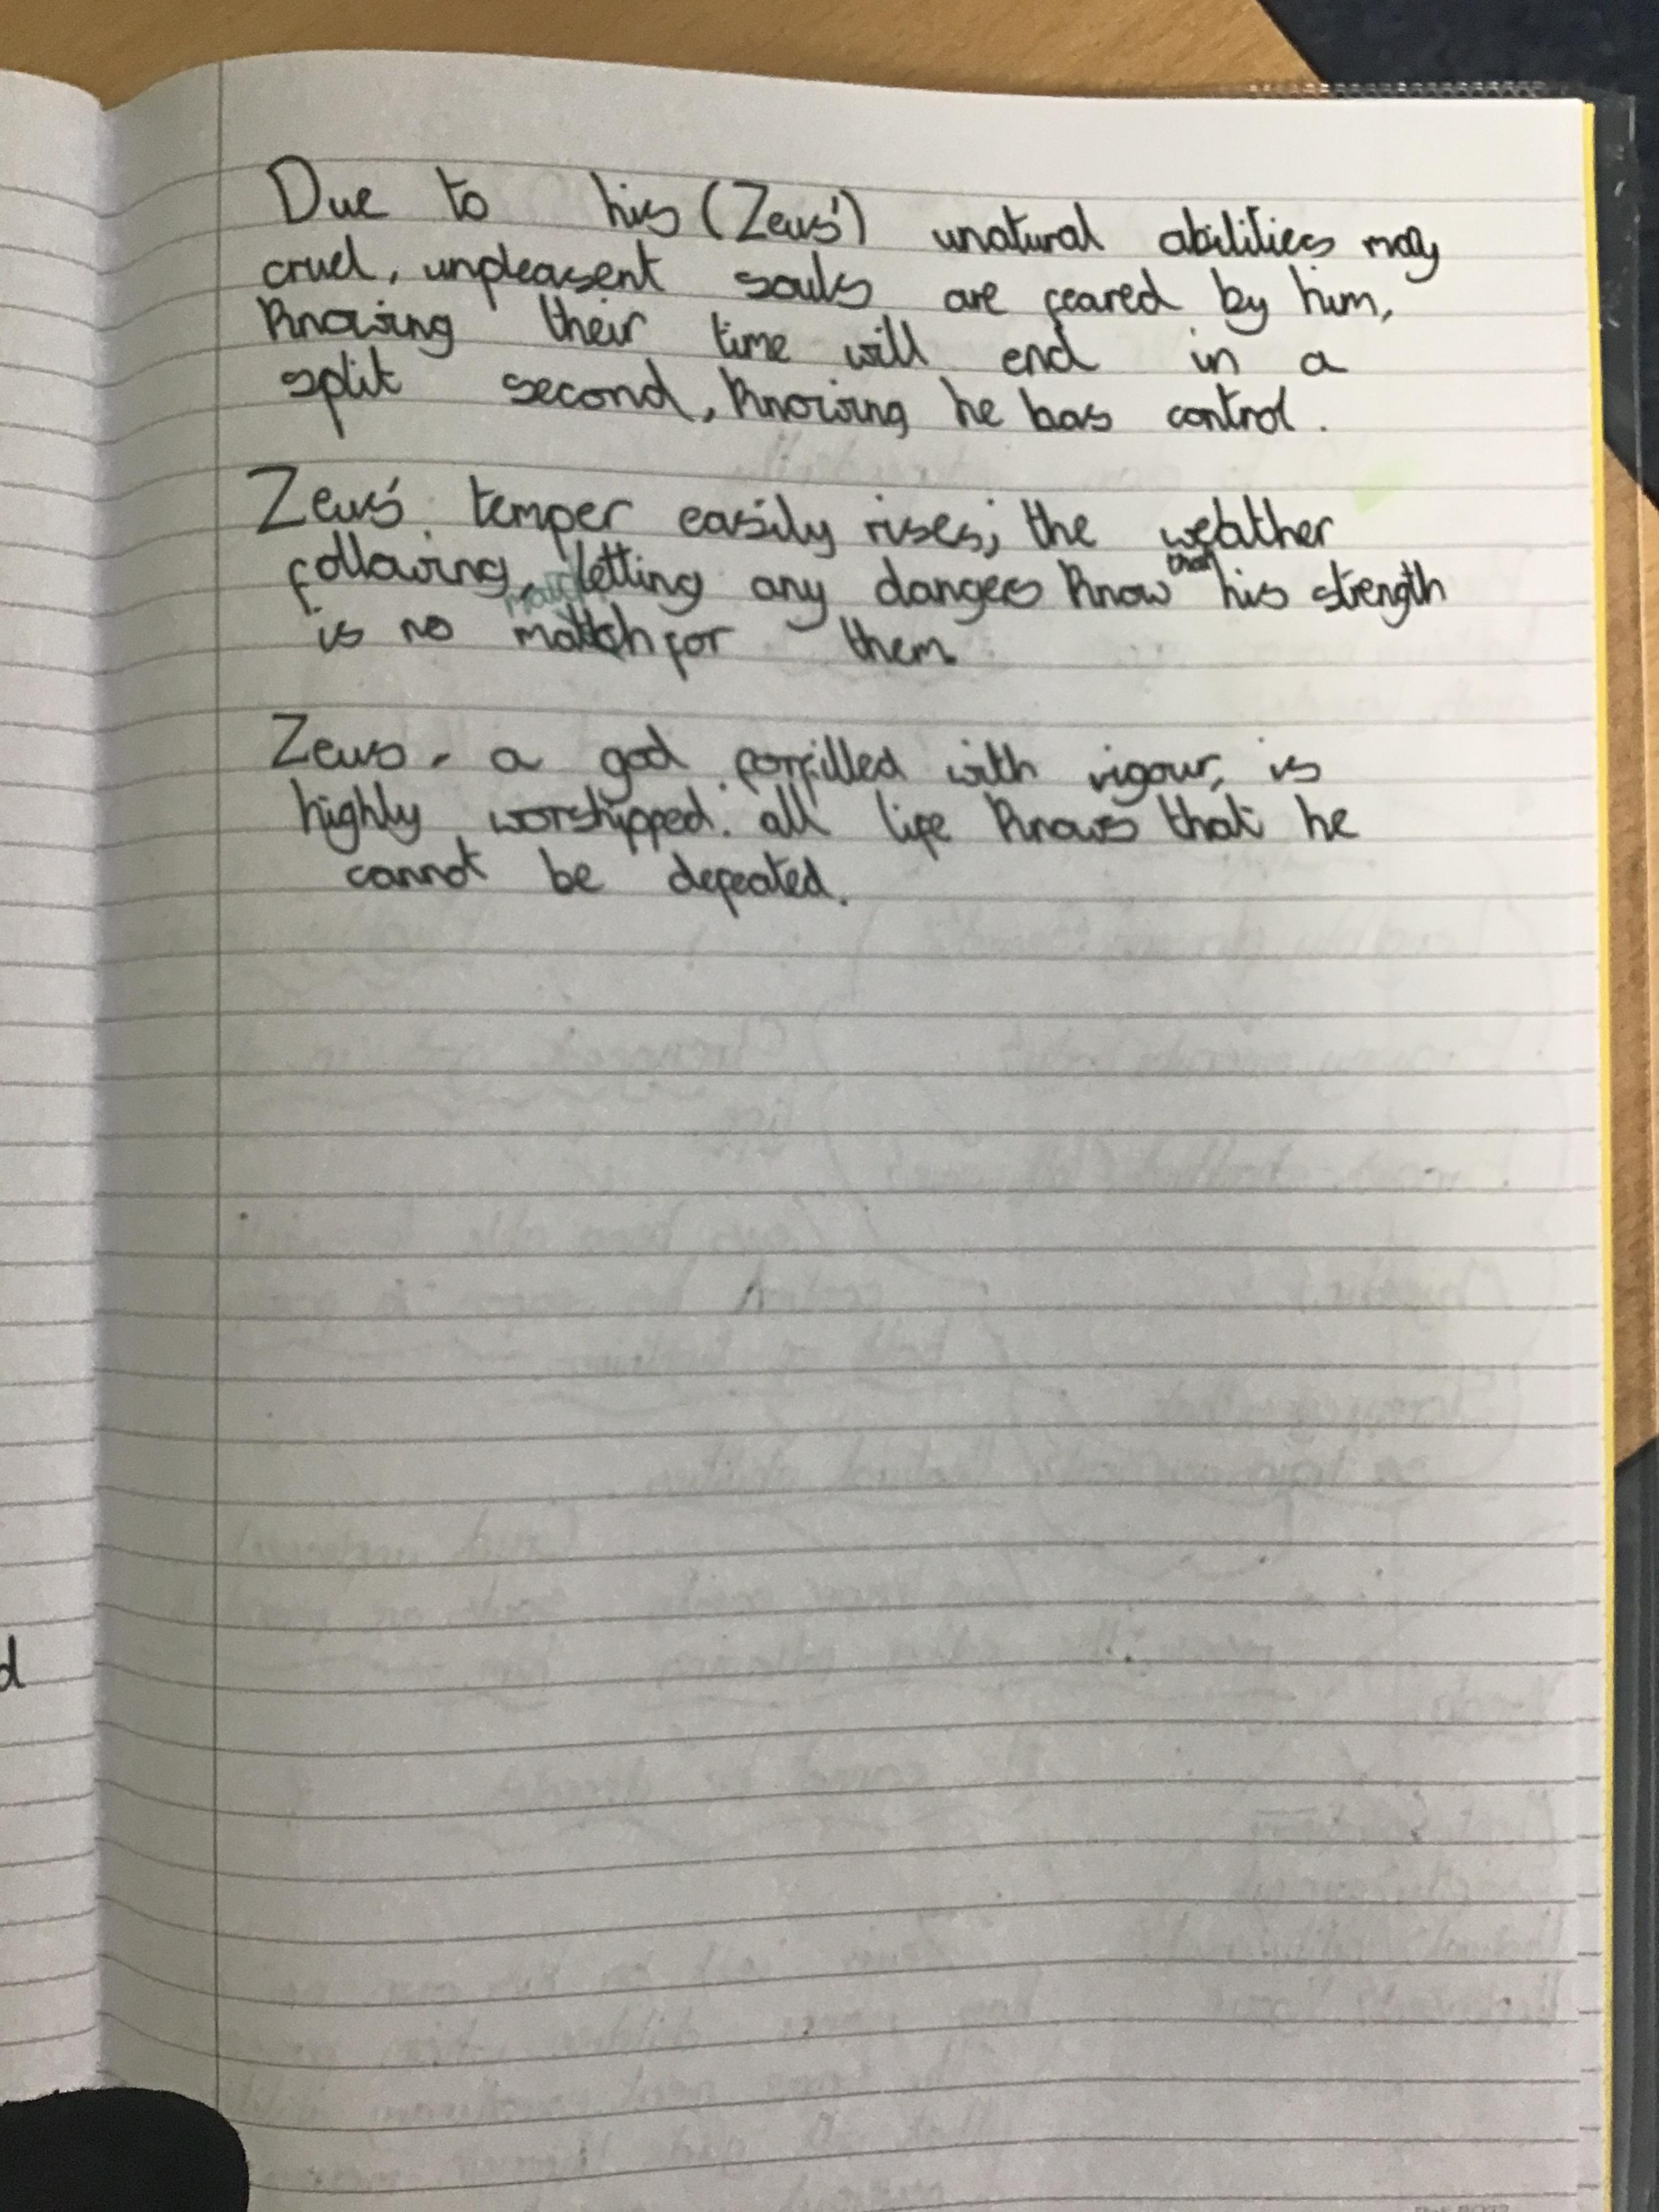 Due to his (Zeus') unatural abilities may
cruel, unpleasent souls are feared by him,
Knowing their time will end in a
split second, Knowing he has control.
Zeus' temper easily rises; the weather
following, letting any dangers Know that his strength
is no match for them.
Zeus - a god forfilled with vigour, is
highly worshipped. all life Knows that he
cannot be defeated.
d